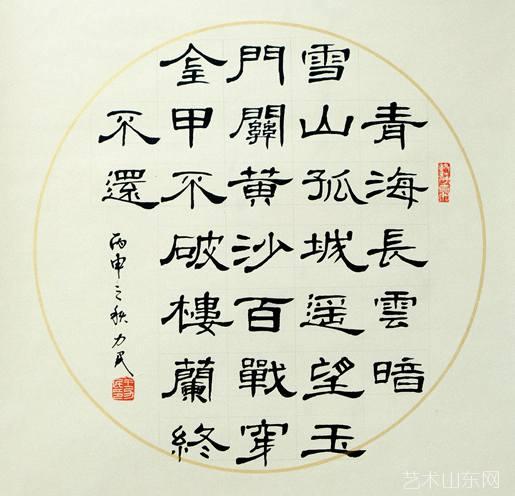 青海長雲暗
雪山孤城遥望玉
門關黄沙百戰穿
金甲不破樓蘭終
不還
丙申之秋力民
艺术山东网